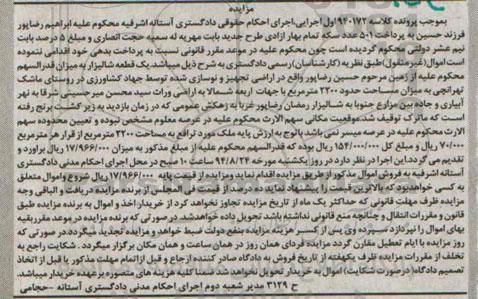 مزایده
بموجب پرونده کلاسه ۹۴۰۱۷۲ اول اجرایی،اجرای احکام حقوقی دادگستری آستانه اشرفیه محکوم علیه ابراهیم رضاپور
فرزند حسین به پرداخت ۵۰۱ عدد سکه تمام بهار آزادی طرح جدید بابت مهریه له سمیه حجت انصاری و مبلغ ۵ درصد بابت
نیم عشر دولتی محکوم گردیده است چون محکوم علیه در موعد مقرر قانونی نسبت به پرداخت بدهی خود اقدامی ننموده
است اموال (غیرمنقول) طبق نظریه (کارشناسان) رسمی دادگستری به شرح ذیل میباشد یک قطعه شالیزار به میزان قدرالسهم
محکوم علیه از زمین مرحوم حسین رضاپور واقع در اراضی تجهیز و نوسازی شده توسط جهاد کشاورزی در روستای ماشک
تهرانچی به میزان مساحت حدود ۲۲۰۰ مترمربع با جهات اربعه شمالا به اراضی وراث سید محسن میرحسینی شرقا به نهر
آبیاری و جاده بین مزارع جنوبا به شالیزار رمضان رضاپور غربا به زهکش عمومی که در زمان بازدید به زیر کشت برنج رفته
است که ماترک توقیف شد.موقعیت مکانی سهم الارث محکوم علیه در عرصه معلوم مشخص نبوده و تعیین محدوده سهم
الارث محکوم علیه در عرصه میسر نمی باشد باتوجه به ارزش پایه ملک مورد ترافع به مساحت ۲۲۰۰ مترمربع از قرار هر مترمربع
۷۰/۰۰۰ ریال و مبلغ کل ۱۵۴/۰۰۰/۰۰۰ ریال بوده که قدرالسهم محکوم علیه از مبلغ مذکور به میزان ۱۷/۹۶۶/۰۰۰ ریال برآورد و
تقدیم می گردد.این اجرا در نظر دارد در روز یکشنبه مورخه ۹۴/۸/۲۴ ساعت ۱۰ صبح در محل اجرای احکام مدنی دادگستری
آستانه اشرفیه به فروش اموال مذکور از طریق مزایده اقدام نماید ومزایده از قیمت پایه ۱۷/۹۶۶/۰۰۰ ریال شروع واموال متعلق
به کسی خواهدبود که بالاترین قیمت را پیشنهاد نماید ده درصد از قیمت فی المجلس از برنده مزایده دریافت و الباقی وجه
مزایده ظرف مهلت قانونی که حداکثر یک ماه از تاریخ مزایده تجاوز نخواهد کرد از خریدار اخذ و اموال به برنده مزایده طبق
قانون و مقررات انتقال و چنانچه منع قانونی نداشته باشد تحویل داده خواهدشد. در صورتی که برنده مزایده در موعد مقرر بقیه
بهای اموال را نپردازد سپرده وی پس از کسر هزینه مزایده بنفع دولت ضبط خواهد و مزایده تجدید میگردد.در صورتی که
روز مزایده با ایام تعطیل مقارن گردد مزایده فردای همان روز در همان ساعت و همان مکان برگزار میگردد . شکایت راجع به
تخلف از مقررات مزایده ظرف یکهفته از تاریخ فروش به دادگاه صادر کننده ارجاع و قبل ازاتمام مهلت مذکور یا قبل از اتخاذ
تصمیم دادگاه(درصورت شکایت) اموال به خریدار تحویل نخواهد شد ضمنا کلیه هزینه های متصوره برعهده خریدار میباشد.
ح ۳۱۲۹ مدیر شعبه دوم اجرای احکام مدنی دادگستری آستانه -حجامی